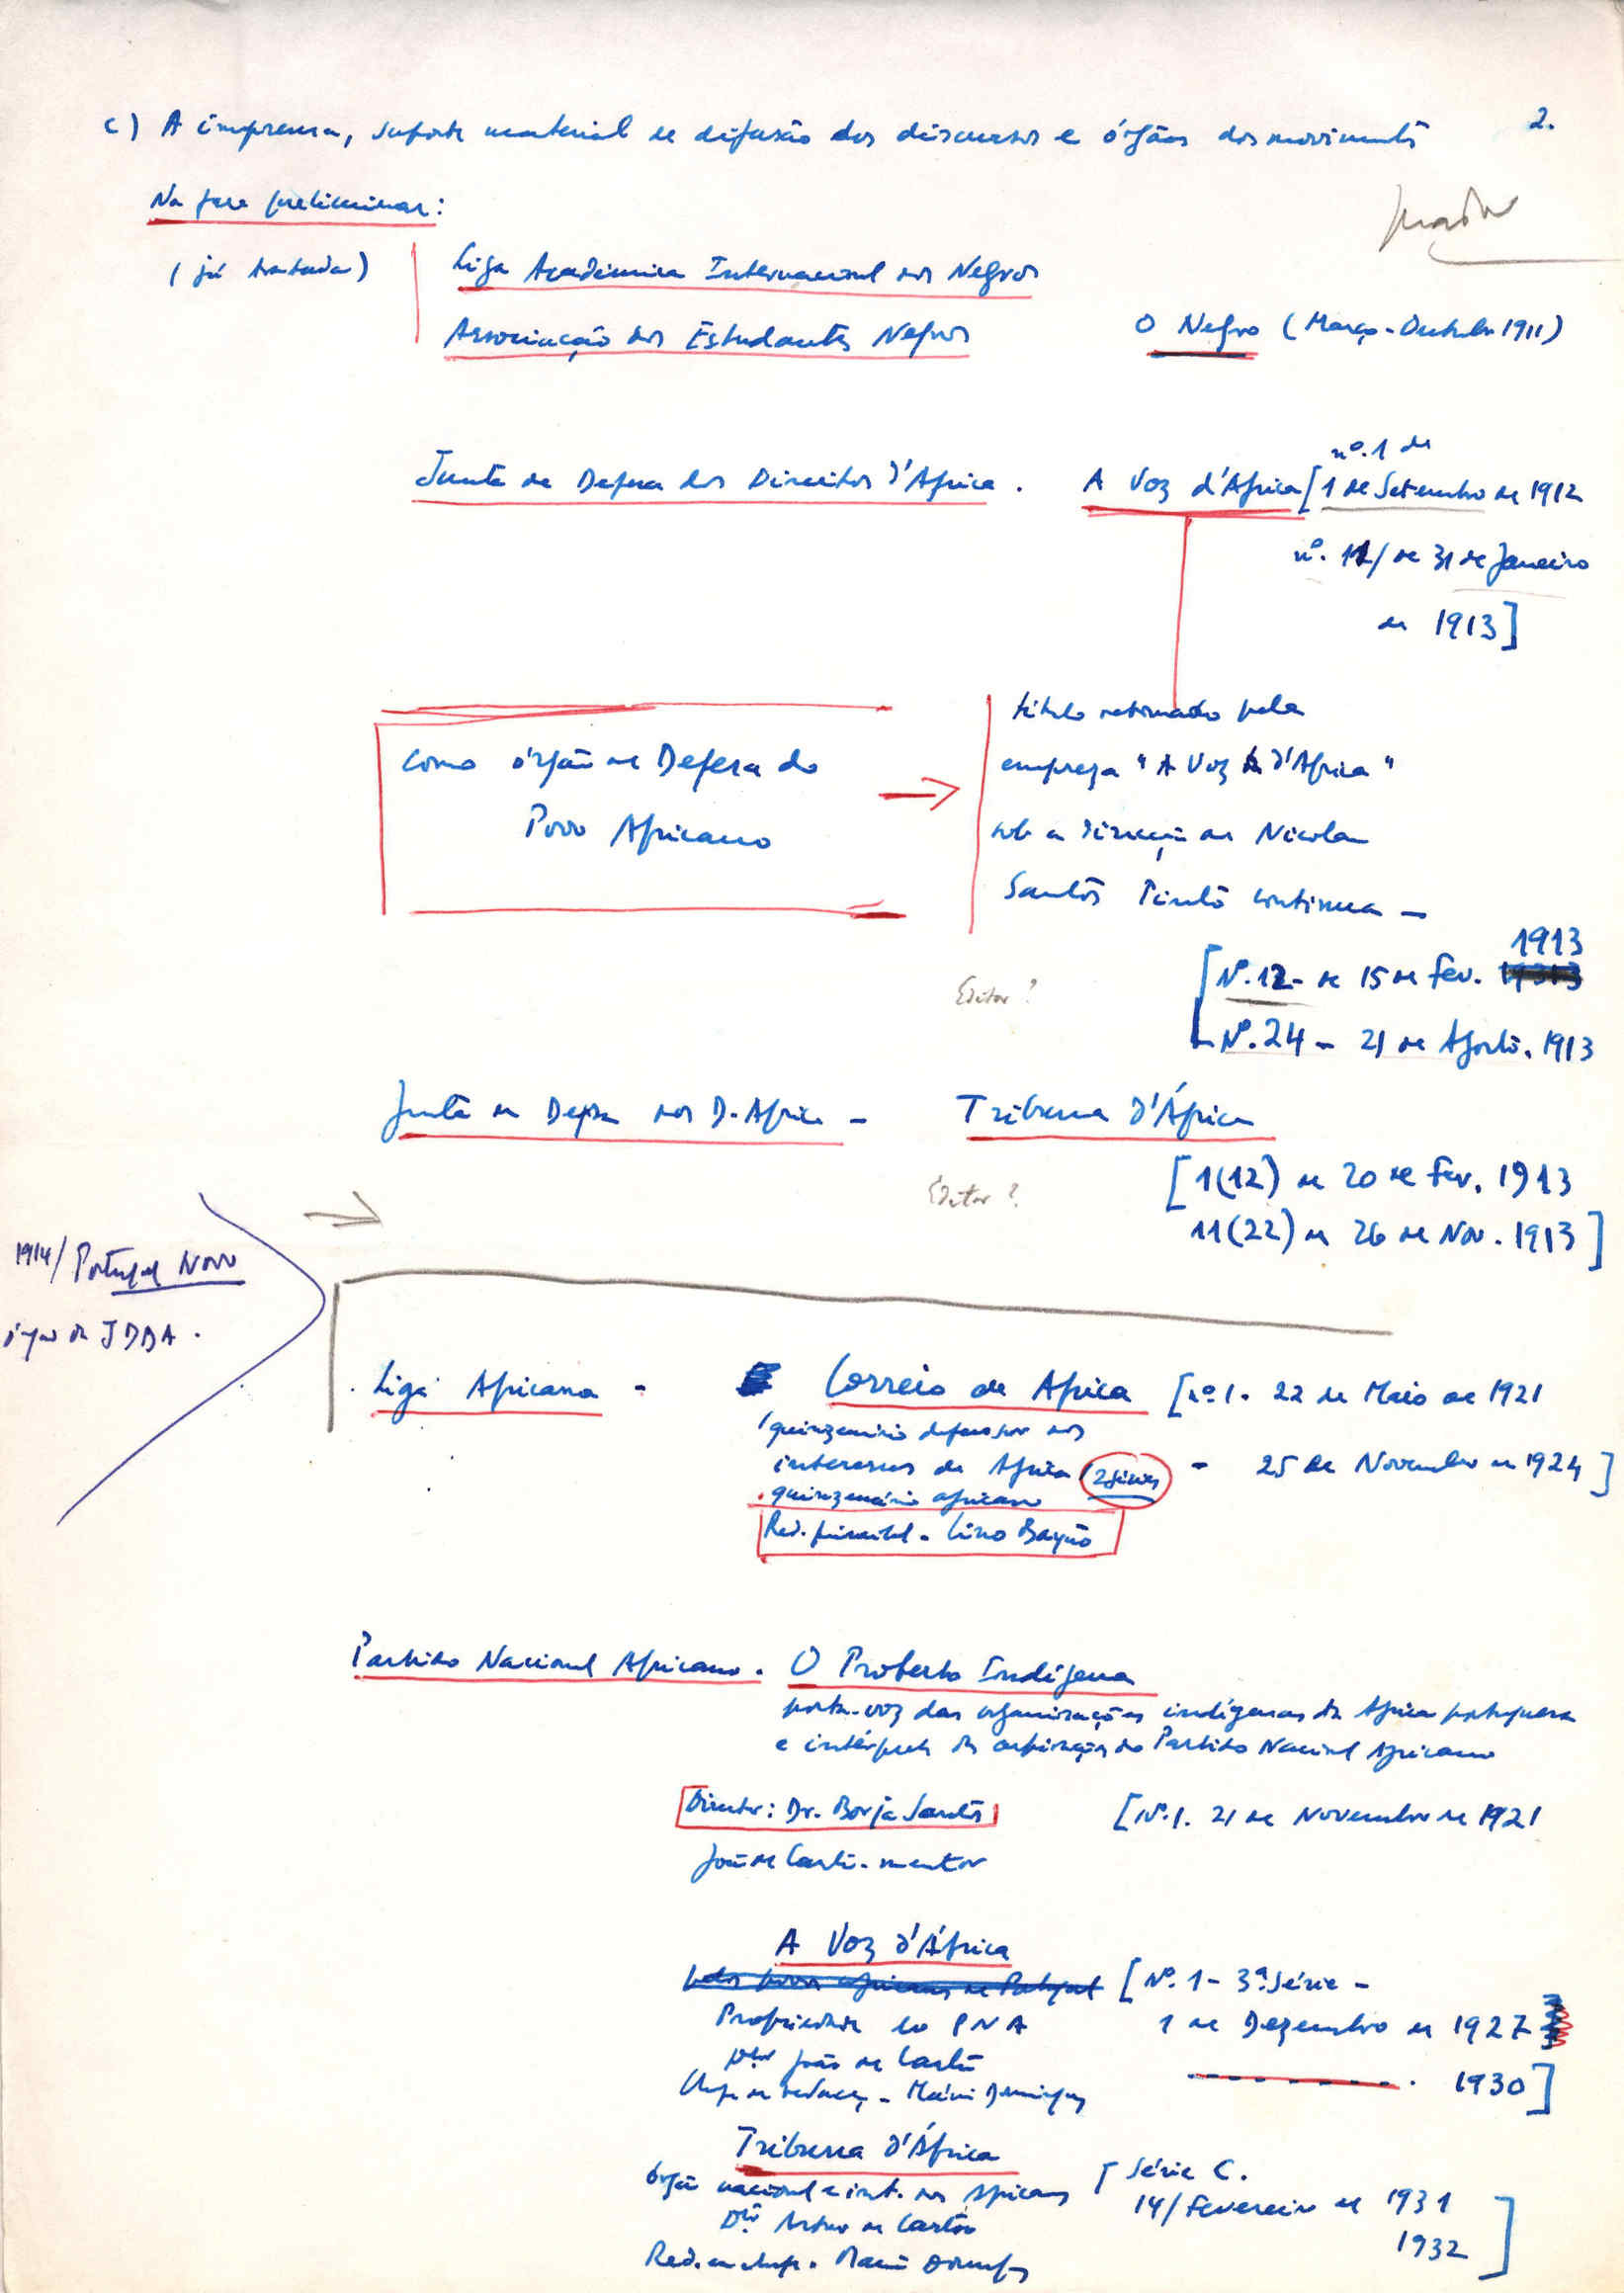 c) A imprensa, suporte material de difusão dos discursos e órgãos dos movimentos
2.
Na fase preliminar:
(já tratada)
Liga Académica Internacional dos Negros
Associação dos Estudantes Negros
O Negro (Março-Outubro 1911)
Junta de Defesa dos Direitos d'Africa.
A Voz d'Africa [
nº.1 de
1 de Setembro de 1912
nº. 11/ de 31 de Janeiro
de 1913]
título retomado pela
empreza "A Voz d'Africa"
sob a direcção de Nicolau
Santos Pinto continua -
como órgão de Defesa do
Povo Africano
1913
[Nº.12- de 15 de Fev.
Nº.24 - 21 de Agosto. 1913
Editor?
Junta de Defesa dos D. Africa -
Tribuna d'África
[1(12) de 20 de Fev. 1913
11(22) de 26 de Nov. 1913]
Editor?
1914/Portugal Novo
órgão da JDDA.
Liga Africana -
Correio de Africa [nº1. 22 de Maio de 1921
quinzenário defensor dos
interesses de Africa
2 séries
- 25 de Novembro de 1924]
quinzenário africano
Red. principal - Lino Bayão
Partido Nacional Africano.
O Protesto Indígena
porta-voz das organizações indígenas da Africa portuguesa
e intérprete da aspiração do Partido Nacional Africano
Director: Dr. Borja Santos
[Nº.1. 21 de Novembro de 1921
João de Castro - mentor
A Voz d'África
pelos povos africanos de Portugal
[Nº.1 - 3ª. Série -
Propriedade do PNA
1 de Dezembro de 1927
Dtor João de Castro
1930]
Chefe de redacç. - Mário Domingues
Tribuna d'África
[Série C.
órgão nacional e int. dos Africanos
14/Fevereiro de 1931
Dtor. Artur de Castro
1932]
Red. em chefe. Mário Domingues